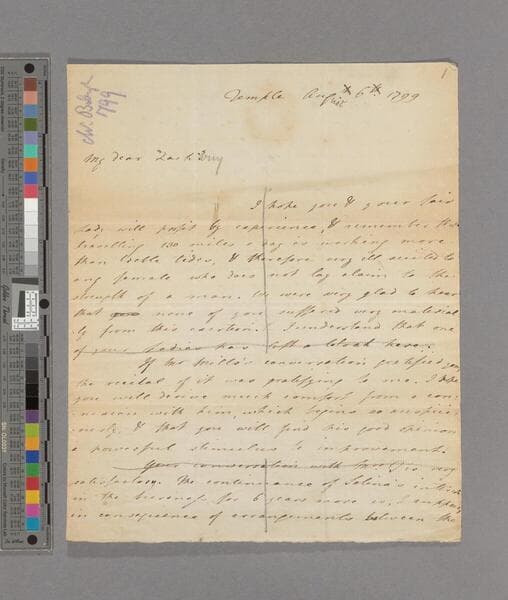 1799
Temple Augst 6th 1799
My dear Zach
I hope you & your fair
Lady will profit by experience, & remember that
travelling 130 miles a day is working more
than feeble bodies, & therefore very ill suited to
any female who does not lay claim to the
strength of a man. We were very glad to hear
that none of you suffered very material
ly from this exertion. I understand that one
of your Ladies has left a cloak here.
If Mr Mills's conversation gratified you
the recital of it was gratifying to me. I hope
you will derive much comfort from a con
nexion with him, which begins so auspici
ously, & that you will find his good opinion
a powerful stimulus to improvement.
Your conversation with is very
satisfactory. The continuance of Selina's
in the business for 6 years more is,
in consequence of arrangements between the